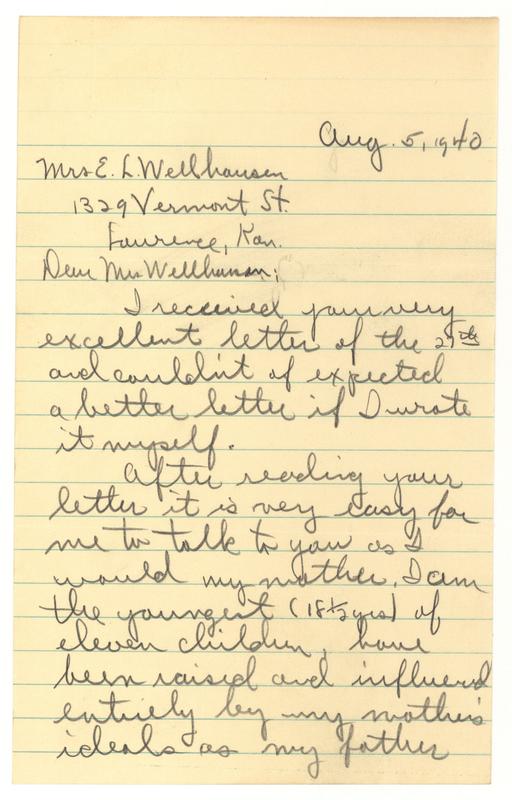 Aug. 5, 1940
Mrs E. L. Wellhausen
1329 Vermont St.
Lawrence, Kan.
Dear Mrs Wellhausen;
I received your very
excellent letter of the 27th
and couldn't of expected
a better letter if I wrote
it myself.
After reading your
letter it is very easy for
me to talk to you as I
would my mother. I am
the youngest (18½ yrs) of
eleven children, have
been raised and influenced
entirely by my mother's
ideals as my father